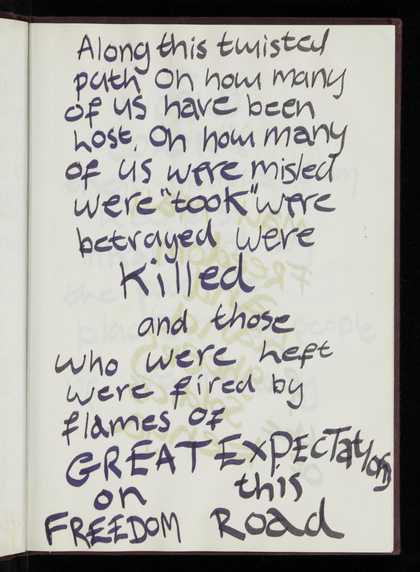 Along this twisted
path Oh how many
of us have been
lost. Oh how many
of us were misled
were "took" were
betrayed were
Killed
and those
who were left
were fired by
flames of
GREAT EXPECTatIONS
on this
FREEDOM ROad